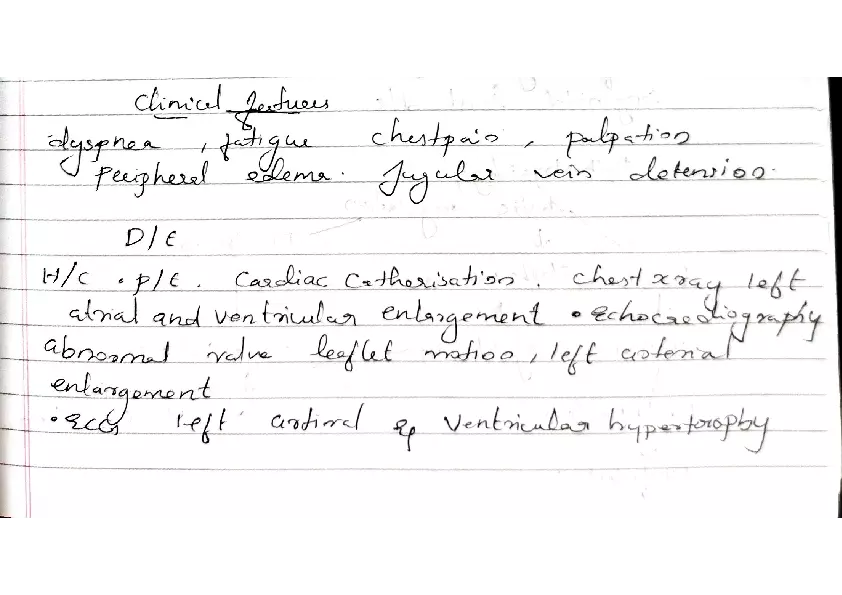 Clinical features
dyspnea , fatigue chestpain , palpation
Peripheral edema. Jugular vein detension.
D/E
H/C . P/E . Cardiac Catherisation . chest xray left
atrial and ventricular enlargement • Echocardiography
abnormal valve leaflet motion , left arterial
enlargement
• ECG left artiral & Ventricular hypertorophy